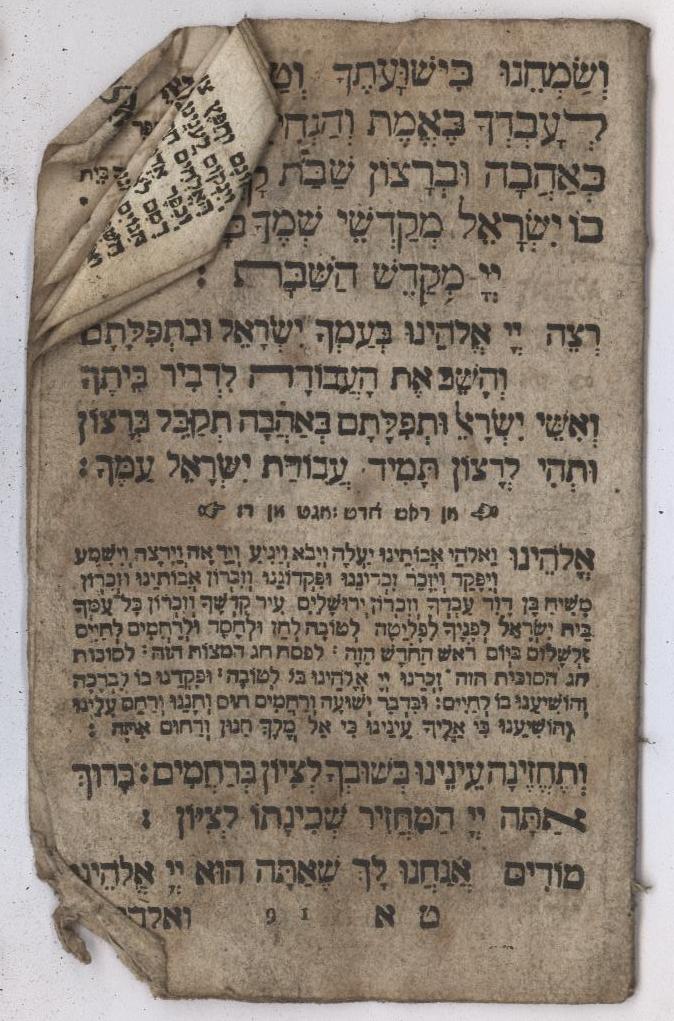 וְשַׂמְּחֵנוּ בִּישׁוּעָתֶךָ
לְעָבְדְּךָ בֶּאֱמֶת
בְּאַהֲבָה וּבְרָצוֹן שַׁבַּת
בוֹ יִשְׂרָאֵל מְקַדְּשֵׁי שְׁמֶךָ
יְיָ מְקַדֵּשׁ הַשַּׁבָּת :
רְצֵה יְיָ אֱלֹהֵינוּ בְּעַמְּךָ יִשְׂרָאֵל וּבִתְפִלָּתָם
וְהָשֵׁב אֶת הָעֲבוֹדָה לִדְבִיר בֵּיתֶךָ
וְאִשֵּׁי יִשְׂרָאֵל וּתְפִלָּתָם בְּאַהֲבָה תְקַבֵּל בְּרָצוֹן
וּתְהִי לְרָצוֹן תָּמִיד עֲבוֹדַת יִשְׂרָאֵל עַמֶּךָ :
אֱלֹהֵינוּ וֵאלֹהֵי אֲבוֹתֵינוּ יַעֲלֶה וְיָבֹא וְיַגִּיעַ וְיֵרָאֶה וְיֵרָצֶה וְיִשָּׁמַע
וְיִפָּקֵד וְיִזָּכֵר זִכְרוֹנֵנוּ וּפִקְדוֹנֵנוּ וְזִכְרוֹן אֲבוֹתֵינוּ וְזִכְרוֹן
מָשִׁיחַ בֶּן דָּוִד עַבְדֶּךָ וְזִכְרוֹן יְרוּשָׁלַיִם עִיר קָדְשֶׁךָ וְזִכְרוֹן כָּל עַמְּךָ
בֵּית יִשְׂרָאֵל לְפָנֶיךָ לִפְלֵיטָה לְטוֹבָה לְחֵן וּלְחֶסֶד וּלְרַחֲמִים לְחַיִּים
וּלְשָׁלוֹם בְּיוֹם רֹאשׁ הַחֹדֶשׁ הַזֶּה : לפסח חג המצות הזה : לסוכות
חג הסוכות הזה זָכְרֵנוּ יְיָ אֱלֹהֵינוּ בּוֹ לְטוֹבָה : וּפָקְדֵנוּ בוֹ לִבְרָכָה
וְהוֹשִׁיעֵנוּ בוֹ לְחַיִּים : וּבִדְבַר יְשׁוּעָה וְרַחֲמִים חוּס וְחָנֵּנוּ וְרַחֵם עָלֵינוּ
וְהוֹשִׁיעֵנוּ כִּי אֵלֶיךָ עֵינֵינוּ כִּי אֵל מֶלֶךְ חַנּוּן וְרַחוּם אָתָּה :
וְתֶחֱזֶינָה עֵינֵינוּ בְּשׁוּבְךָ לְצִיּוֹן בְּרַחֲמִים : בָּרוּךְ
אַתָּה יְיָ הַמַּחֲזִיר שְׁכִינָתוֹ לְצִיּוֹן :
מוֹדִים אֲנַחְנוּ לָךְ שָׁאַתָּה הוּא יְיָ אֱלֹהֵינוּ
ט א 1 9